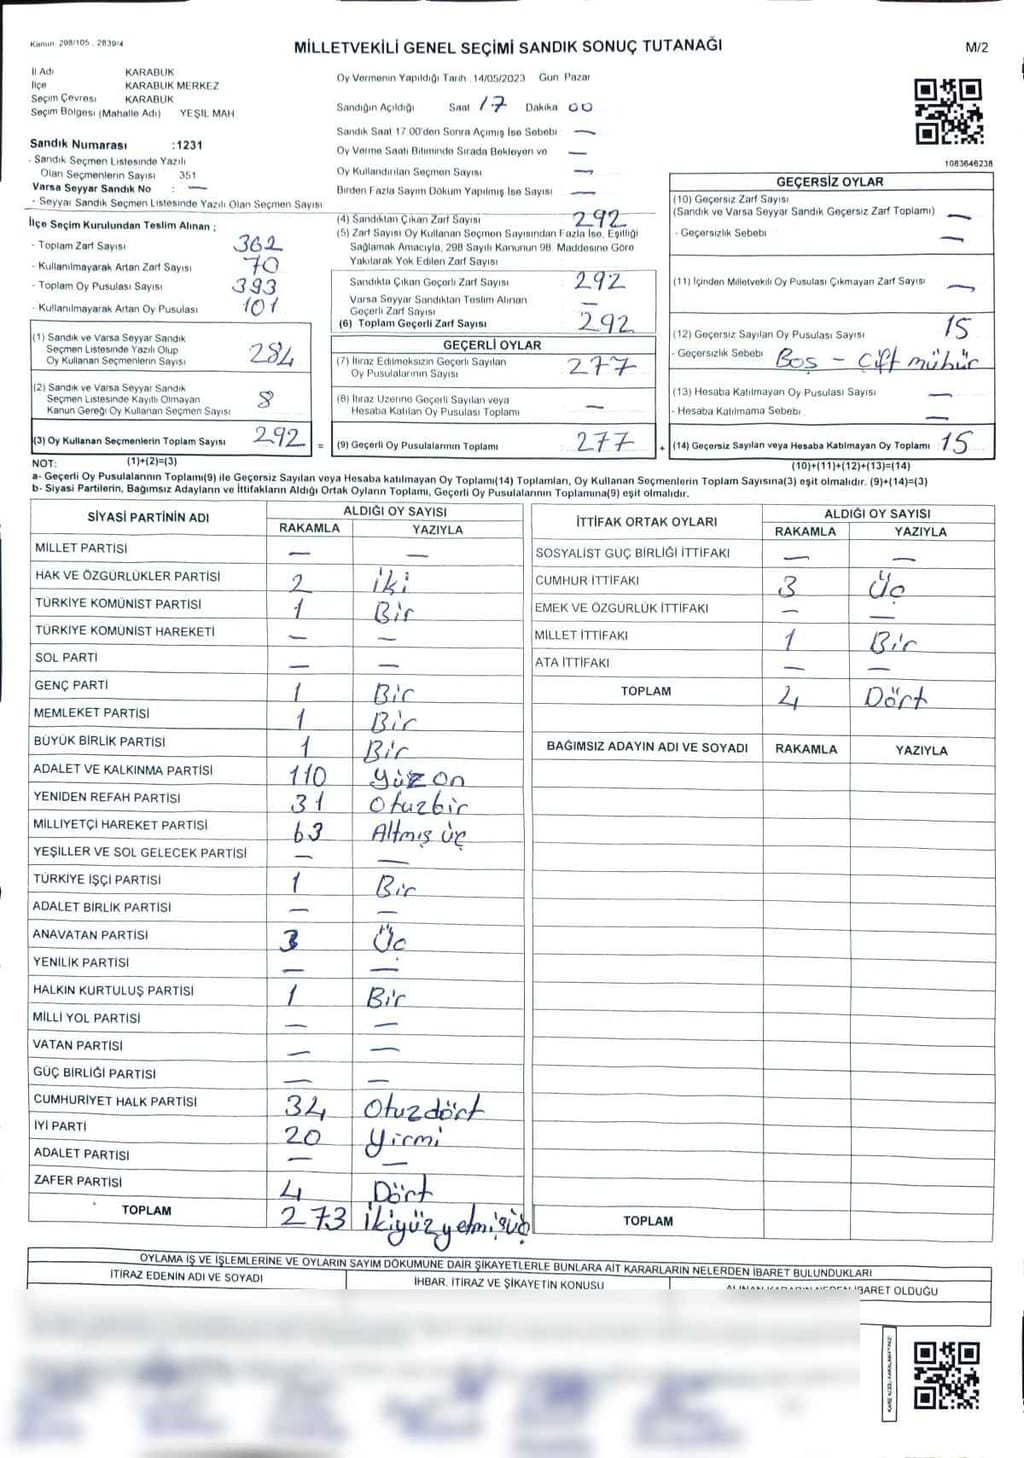 Kanun 298/105 , 2839/4
MİLLETVEKİLİ GENEL SEÇİMİ SANDIK SONUÇ TUTANAĞI
M/2
İl Adı KARABUK
İlçe KARABUK MERKEZ
Seçim Çevresi KARABUK
Seçim Bölgesi (Mahalle Adı) YEŞİL MAH
Oy Vermenin Yapıldığı Tarih 14/05/2023 Gün Pazar
Sandığın Açıldığı Saat 17 Dakika 00
Sandık Saat 17 00'den Sonra Açımış İse Sebebi —
Oy Verme Saati Bitiminde Sırada Bekleyen ve —
Oy Kullandırılan Seçmen Sayısı —
Birden Fazla Sayım Döküm Yapılmış İse Sayısı —
1083646238
Sandık Numarası :1231
- Sandık Seçmen Listesinde Yazılı
Olan Seçmenlerin Sayısı 351
Varsa Seyyar Sandık No : —
- Seyyar Sandık Seçmen Listesinde Yazılı Olan Seçmen Sayısı
İlçe Seçim Kurulundan Teslim Alınan ;
- Toplam Zarf Sayısı 362
- Kullanılmayarak Artan Zarf Sayısı 70
- Toplam Oy Pusulası Sayısı 393
- Kullanılmayarak Artan Oy Pusulası 101
(1) Sandık ve Varsa Seyyar Sandık
Seçmen Listesinde Yazılı Olup
Oy Kullanan Seçmenlerin Sayısı 284
(2) Sandık ve Varsa Seyyar Sandık
Seçmen Listesinde Kayıtlı Olmayan
Kanun Gereği Oy Kullanan Seçmen Sayısı 8
(3) Oy Kullanan Seçmenlerin Toplam Sayısı 292 =
(1)+(2)=(3)
(4) Sandıktan Çıkan Zarf Sayısı 292
(5) Zarf Sayısı Oy Kullanan Seçmen Sayısından Fazla İse, Eşitliği
Sağlamak Amacıyla, 298 Sayılı Kanunun 98. Maddesine Göre
Yakılarak Yok Edilen Zarf Sayısı
Sandıkta Çıkan Geçerli Zarf Sayısı 292
Varsa Seyyar Sandıktan Teslim Alınan
Geçerli Zarf Sayısı —
(6) Toplam Geçerli Zarf Sayısı 292
GEÇERLİ OYLAR
(7) İtiraz Edilmeksizin Geçerli Sayılan
Oy Pusulalarının Sayısı 277
(8) İtiraz Üzerine Geçerli Sayılan veya
Hesaba Katılan Oy Pusulası Toplamı —
(9) Geçerli Oy Pusulalarının Toplamı 277 +
GEÇERSİZ OYLAR
(10) Geçersiz Zarf Sayısı
(Sandık ve Varsa Seyyar Sandık Geçersiz Zarf Toplamı) —
- Geçersizlik Sebebi —
(11) İçinden Milletvekili Oy Pusulası Çıkmayan Zarf Sayısı —
(12) Geçersiz Sayılan Oy Pusulası Sayısı 15
- Geçersizlik Sebebi Boş - Çift mühür
(13) Hesaba Katılmayan Oy Pusulası Sayısı —
- Hesaba Katılmama Sebebi —
(14) Geçersiz Sayılan veya Hesaba Katılmayan Oy Toplamı 15
(10)+(11)+(12)+(13)=(14)
NOT:
a- Geçerli Oy Pusulalarının Toplamı(9) ile Geçersiz Sayılan veya Hesaba katılmayan Oy Toplamı(14) Toplamları, Oy Kullanan Seçmenlerin Toplam Sayısına(3) eşit olmalıdır. (9)+(14)=(3)
b- Siyasi Partilerin, Bağımsız Adayların ve İttifakların Aldığı Ortak Oyların Toplamı, Geçerli Oy Pusulalarının Toplamına(9) eşit olmalıdır.
SİYASİ PARTİNİN ADI
ALDIĞI OY SAYISI
RAKAMLA YAZIYLA
MİLLET PARTİSİ — —
HAK VE ÖZGÜRLÜKLER PARTİSİ 2 iki
TÜRKİYE KOMÜNİST PARTİSİ 1 Bir
TÜRKİYE KOMÜNİST HAREKETİ — —
SOL PARTİ — —
GENÇ PARTİ 1 Bir
MEMLEKET PARTİSİ 1 Bir
BÜYÜK BİRLİK PARTİSİ 1 Bir
ADALET VE KALKINMA PARTİSİ 110 Yüz on
YENİDEN REFAH PARTİSİ 31 Otuzbir
MİLLİYETÇİ HAREKET PARTİSİ 63 Altmış üç
YEŞİLLER VE SOL GELECEK PARTİSİ — —
TÜRKİYE İŞÇİ PARTİSİ 1 Bir
ADALET BİRLİK PARTİSİ — —
ANAVATAN PARTİSİ 3 Üç
YENİLİK PARTİSİ — —
HALKIN KURTULUŞ PARTİSİ 1 Bir
MİLLİ YOL PARTİSİ — —
VATAN PARTİSİ — —
GÜÇ BİRLİĞİ PARTİSİ — —
CUMHURİYET HALK PARTİSİ 34 Otuzdört
İYİ PARTİ 20 Yirmi
ADALET PARTİSİ — —
ZAFER PARTİSİ 4 Dört
TOPLAM 273 İkiyüzyetmişüç
İTTİFAK ORTAK OYLARI
ALDIĞI OY SAYISI
RAKAMLA YAZIYLA
SOSYALİST GÜÇ BİRLİĞİ İTTİFAKI — —
CUMHUR İTTİFAKI 3 Üç
EMEK VE ÖZGÜRLÜK İTTİFAKI — —
MİLLET İTTİFAKI 1 Bir
ATA İTTİFAKI — —
TOPLAM 4 Dört
BAĞIMSIZ ADAYIN ADI VE SOYADI RAKAMLA YAZIYLA
TOPLAM
OYLAMA İŞ VE İŞLEMLERİNE VE OYLARIN SAYIM DÖKÜMÜNE DAİR ŞİKAYETLERLE BUNLARA AİT KARARLARIN NELERDEN İBARET BULUNDUKLARI
İTİRAZ EDENİN ADI VE SOYADI
İHBAR, İTİRAZ VE ŞİKAYETİN KONUSU
İBARET OLDUĞU